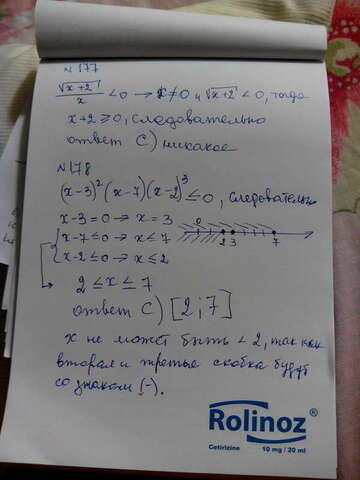 N 177
√x+2 / x < 0 → x ≠ 0 и √x+2 < 0, тогда
x+2 ≥ 0, следовательно
ответ C) никакое
N 178
(x-3)² (x-7) (x-2)³ ≤ 0, следовательно
x-3=0 → x=3
x-7≤0 → x≤7
x-2≤0 → x≤2
0 2 3 7
2 ≤ x ≤ 7
ответ C) [2;7]
x не может быть < 2, так как
вторая и третья скобка будут
со знаком (-).
Rolinoz®
Cetirizine 10 mg / 20 ml